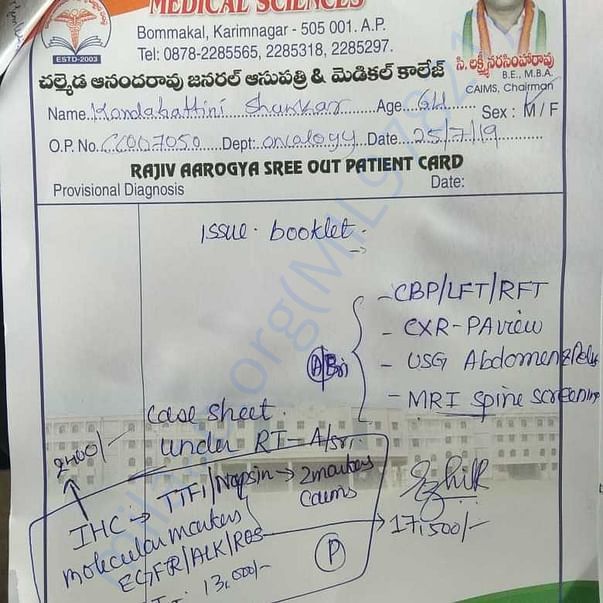 MEDICAL SCIENCES
Bommakal, Karimnagar - 505 001. A.P.
Tel: 0878-2285565, 2285318, 2285297.
ESTD-2003
చల్మెడ ఆనందరావు జనరల్ ఆసుపత్రి & మెడికల్ కాలేజ్
సి. లక్ష్మీనరసింహారావు
B.E., M.B.A.
CAIMS, Chairman
Name. Kandahattini Shankar Age. 64 Sex : M / F
O.P. No. CC007050 Dept: oncology Date. 25/7/19
RAJIV AAROGYA SREE OUT PATIENT CARD
Provisional Diagnosis Date:
Issue booklet.
- CBP/LFT/RFT
- CXR-PA view
- USG Abdomen &
- MRI spine screening
Case sheet
under RT-A/sri
2400/-
IHC → TTF1/Napsin → 2 markers
Caims
molecular markers
EGFR/ALK/ROS → 17,500/-
13,000/-
P
milaap.org